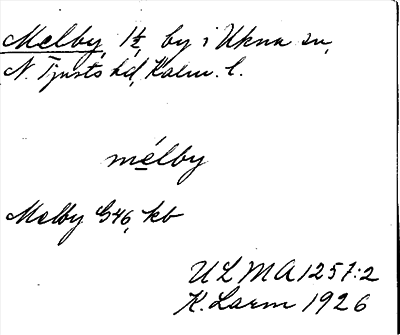 Melby, 1/2, by i Ukna sn,
N. Tjusts hd, Kalm. l.
mélby
Melby G46, kb
ULMA 1257:2
K. Larm 1926